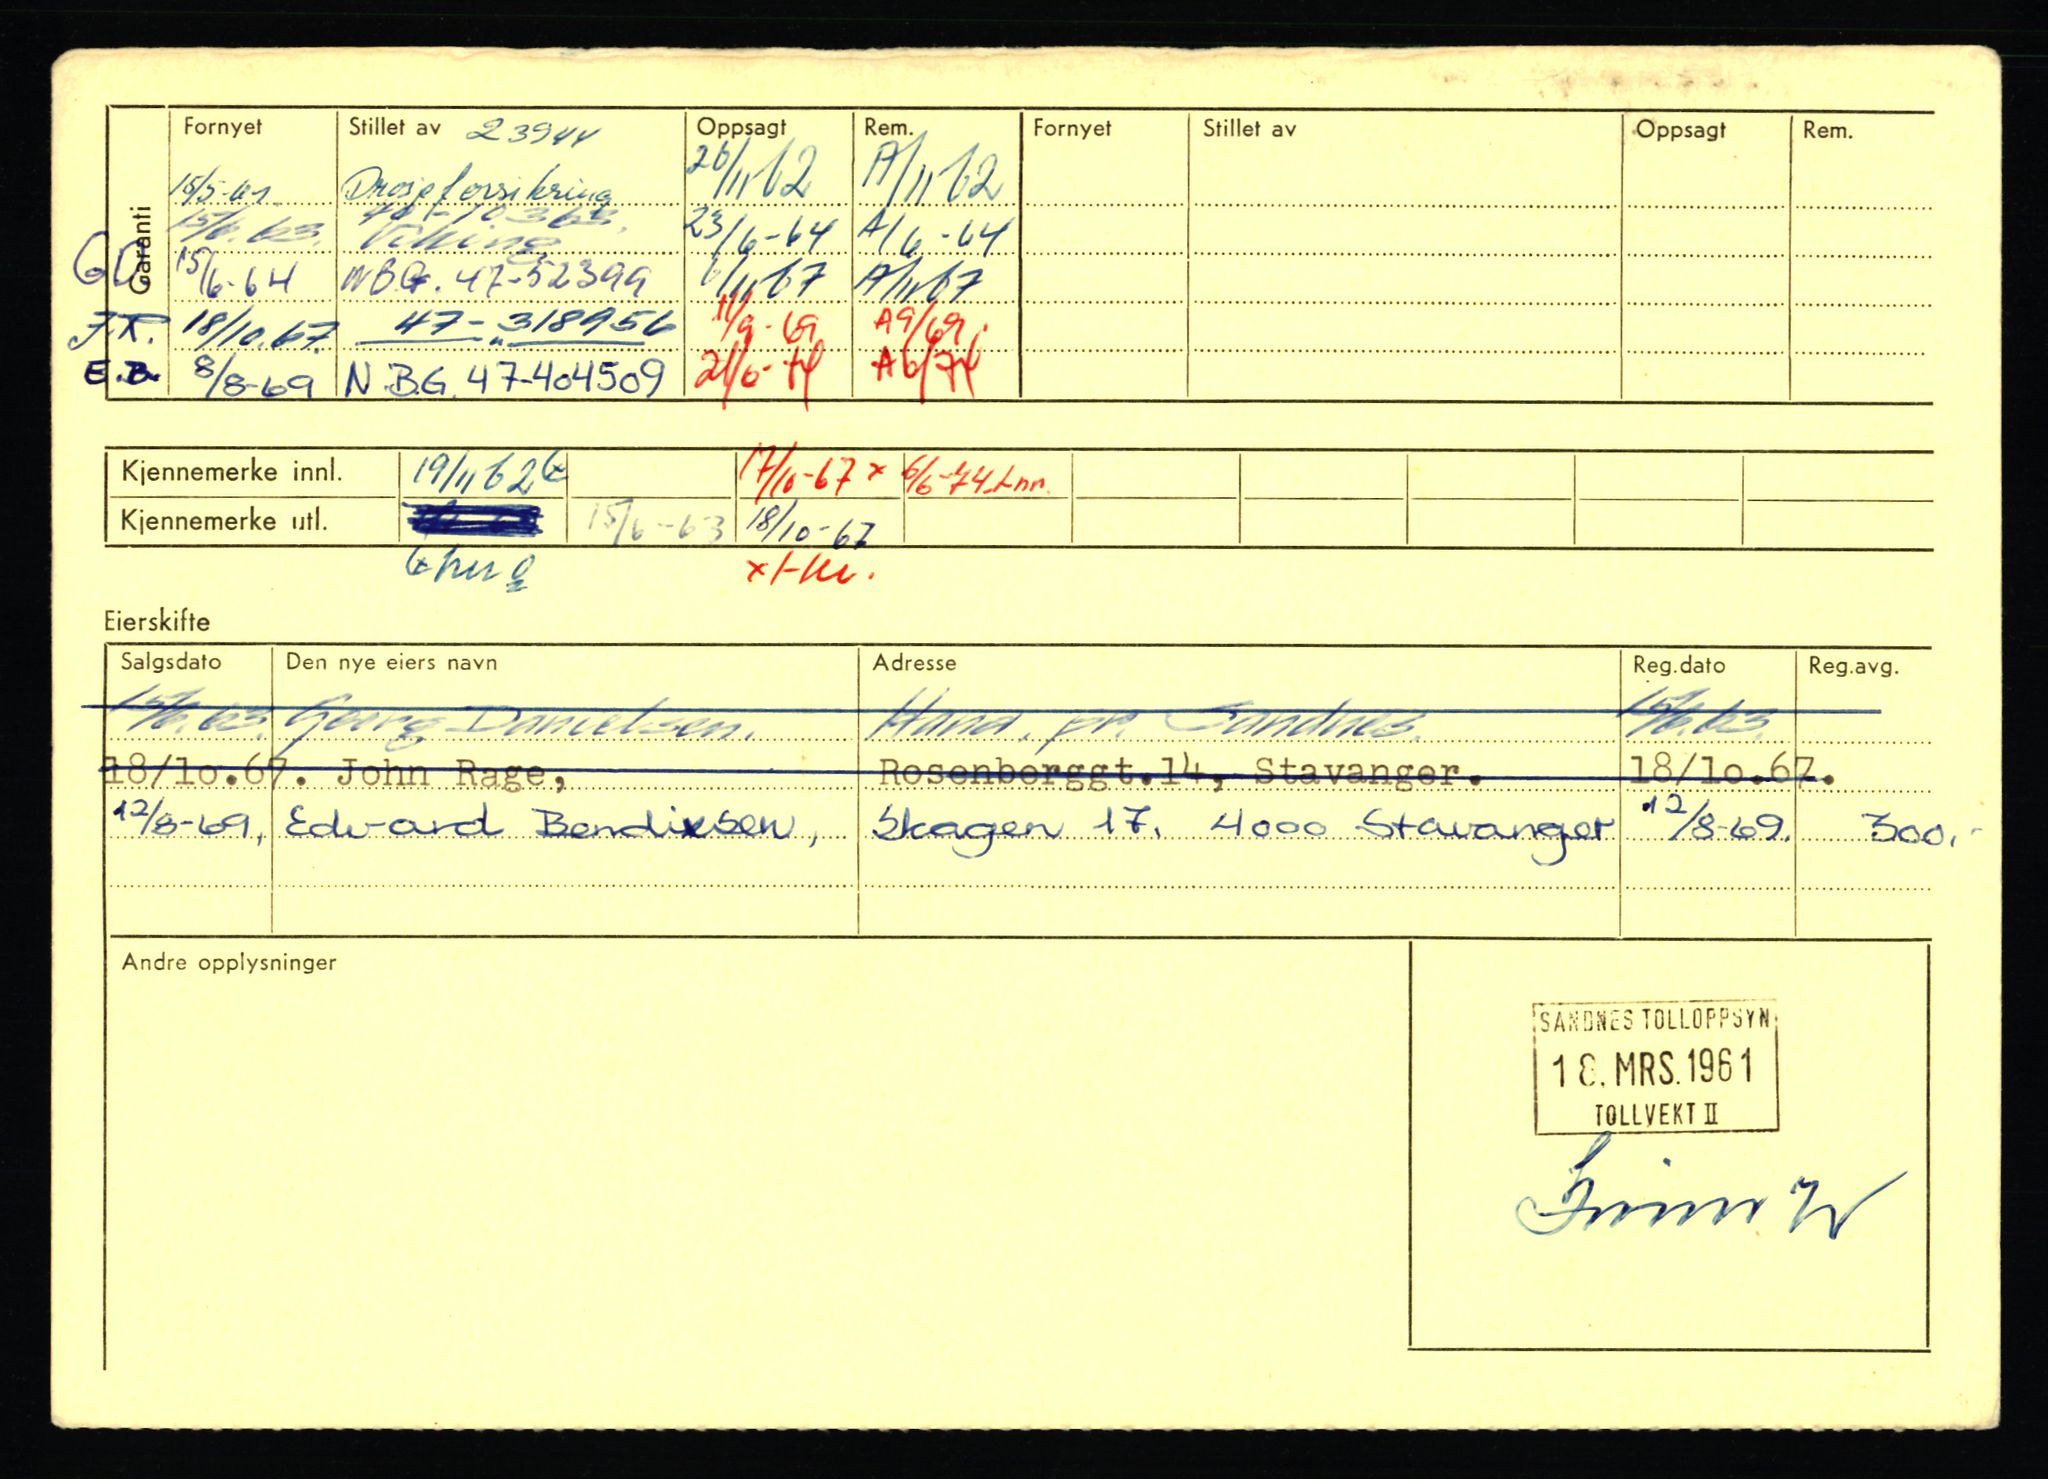 Garanti Fornyet Stillet av 23944 Oppsagt Rem. Fornyet Stillet av Oppsagt Rem.
15/5-61. Drosjeforsikring 26/11 62 A/11 62
15/6.63. 40-10363. Viking 23/6-64 A/6-64
15/6-64 NBG. 47-52399 6/11 67 A/11 67
F.K. 18/10.67. 47-318956 11/9-69 A9/69.
E.B. 8/8-69 N.B.G. 47-404509 21/6-74 A6/74
Kjennemerke innl. 19/11 62 17/10-67 x 6/6-74
Kjennemerke utl. 15/6-63 18/10-67
Eierskifte
Salgsdato Den nye eiers navn Adresse Reg.dato Reg.avg.
15/6.63. Georg Danielsen. Hana. pr. Sandnes. 15/6.63.
18/10.67. John Rage, Rosenberggt.14, Stavanger. 18/10.67.
12/8-69, Edvard Bendixsen, Skagen 17. 4000 Stavanger 12/8-69. 300.-
Andre opplysninger
SANDNES TOLLOPPSYN
18. MRS. 1961
TOLLVEKT II